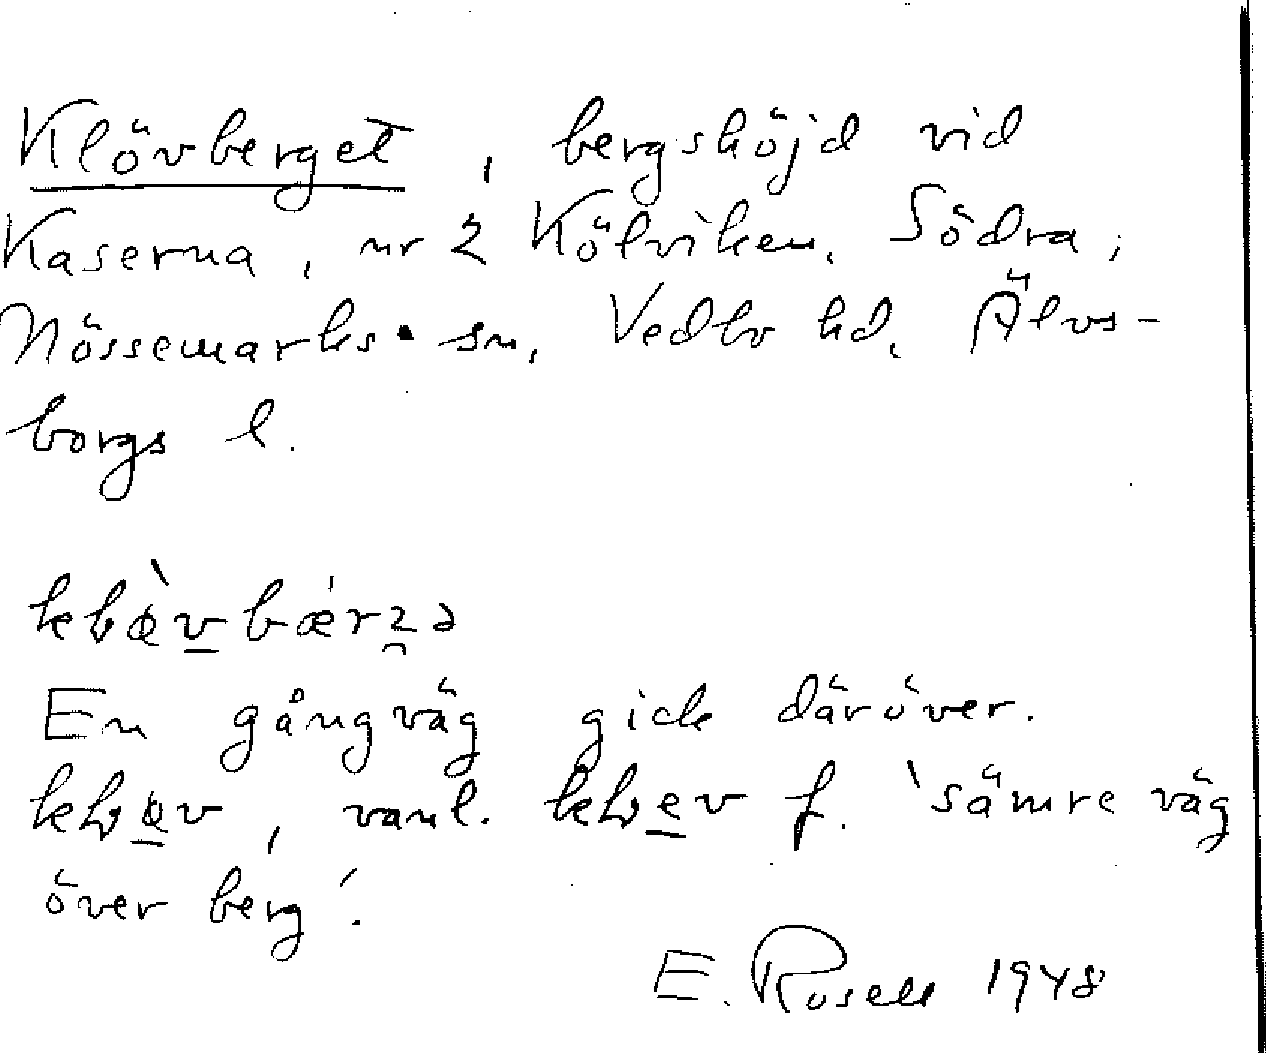 Klövberget, bergshöjd vid
Kaserna, nr 2 Kölviken, Södra;
Nössemarks sn, Vedbo hd, Älvs-
borgs l.
En gångväg gick däröver.
vanl. f. 'sämre väg
över berg'.
E. Rosell 1948